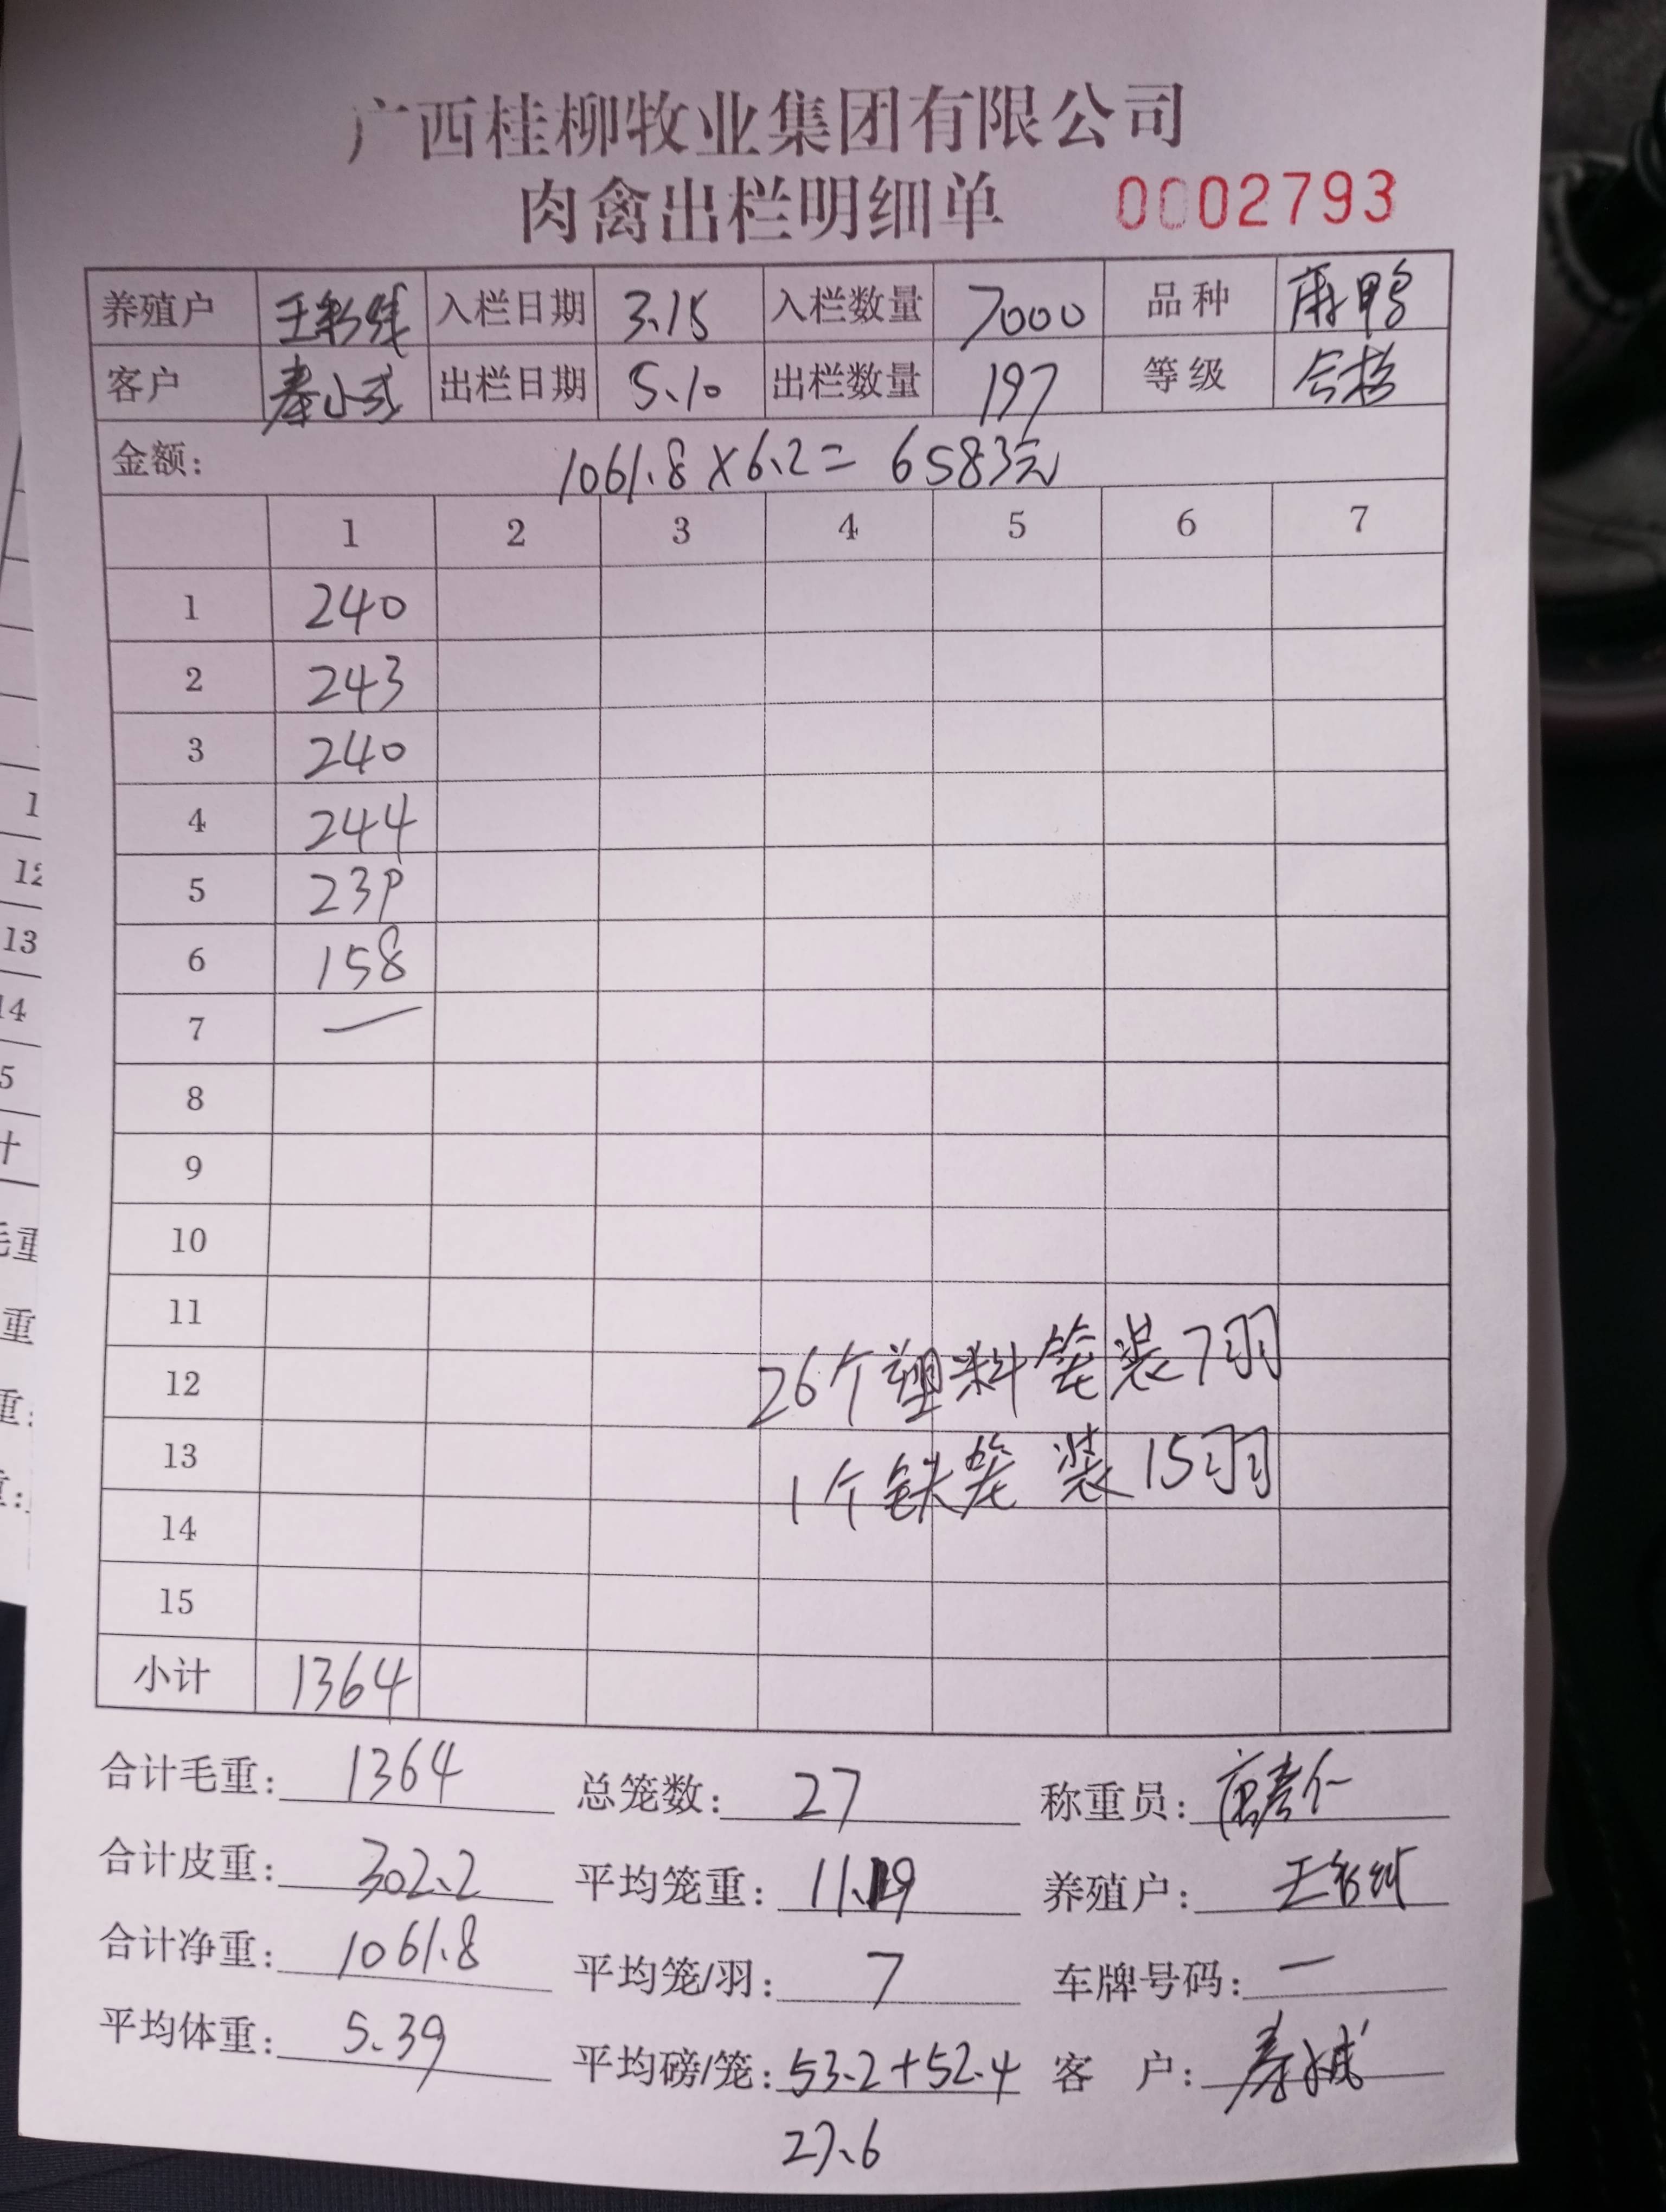 广西桂柳牧业集团有限公司
肉禽出栏明细单 0002793
养殖户 入栏日期 3.15 入栏数量 7000 品种 麻鸭
客户 出栏日期 5.10 出栏数量 197 等级 合格
金额: 1061.8×6.2=6583元
1 2 3 4 5 6 7
1 240
2 243
3 240
4 244
5 239
6 158
7 —
8
9
10
11
12 26个塑料笼装7羽
13 1个铁笼装15羽
14
15
小计 1364
合计毛重: 1364 总笼数: 27 称重员:
合计皮重: 302.2 平均笼重: 11.19 养殖户:
合计净重: 1061.8 平均笼/羽: 7 车牌号码: —
平均体重: 5.39 平均磅/笼: 53.2+52.4 客 户:
27.6
12
13
14
5
计
毛重
重
重:
重: